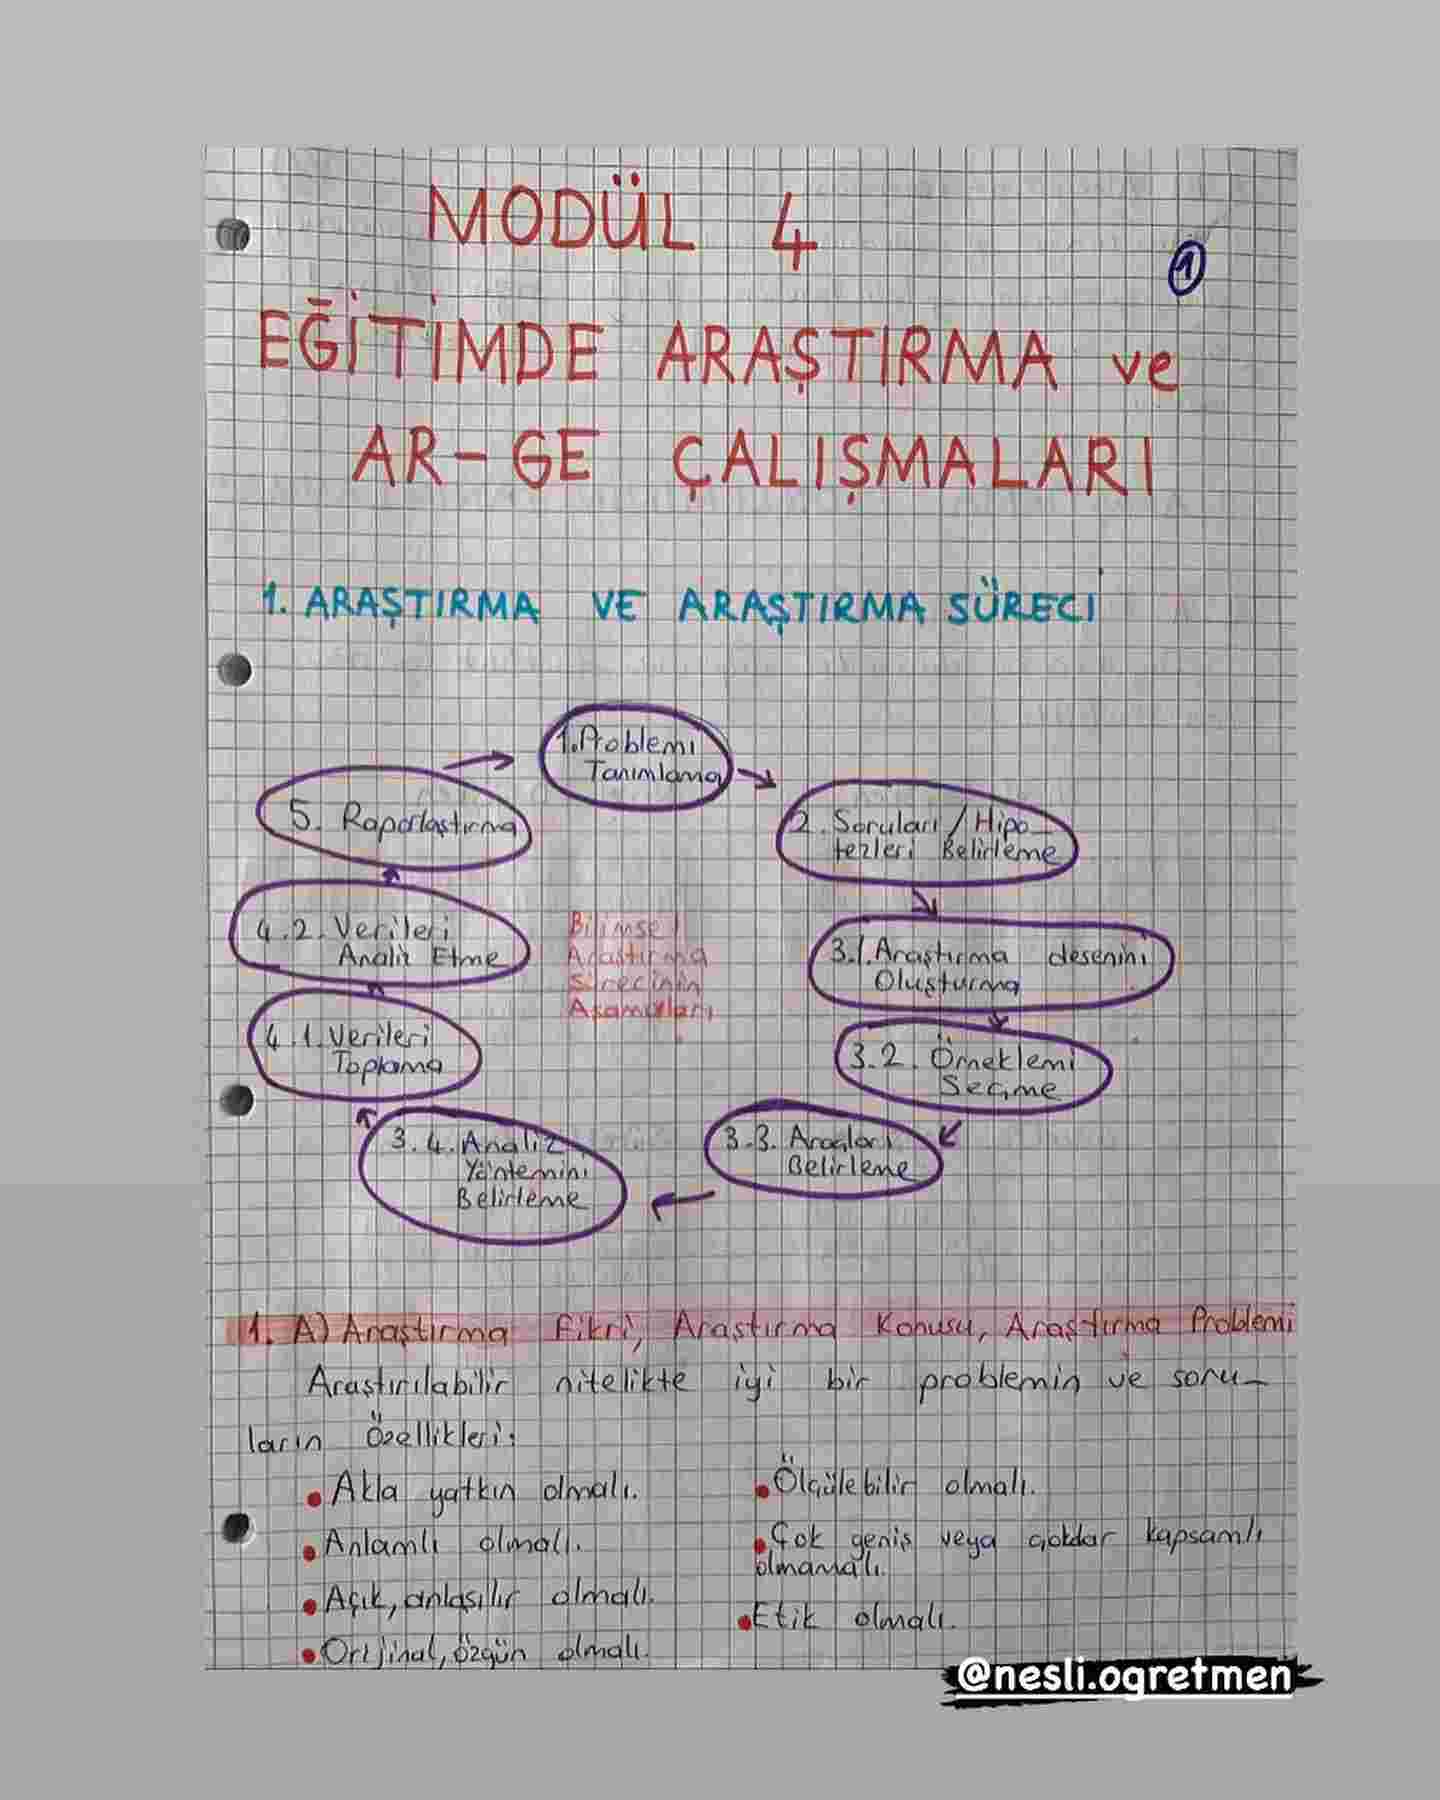 MODÜL 4
1
EĞİTİMDE ARAŞTIRMA ve
AR-GE ÇALIŞMALARI
1. ARAŞTIRMA VE ARAŞTIRMA SÜRECİ
1. Problemi
Tanımlama
2. Soruları / Hipo-
tezleri Belirleme
3.1. Araştırma desenini
Oluşturma
3.2. Örneklemi
Seçme
3.3. Araçları
Belirleme
3.4. Analiz
Yöntemini
Belirleme
4.1. Verileri
Toplama
4.2. Verileri
Analiz Etme
5. Raporlaştırma
Bilimsel
Araştırma
Sürecinin
Aşamaları
1. A) Araştırma Fikri, Araştırma Konusu, Araştırma Problemi
Araştırılabilir nitelikte iyi bir problemin ve soru-
ların Özellikleri:
• Akla yatkın olmalı.
• Anlamlı olmalı.
• Açık, anlaşılır olmalı.
• Orijinal, özgün olmalı.
• Ölçülebilir olmalı.
• Çok geniş veya çok dar kapsamlı
olmamalı.
• Etik olmalı.
@nesli.ogretmen